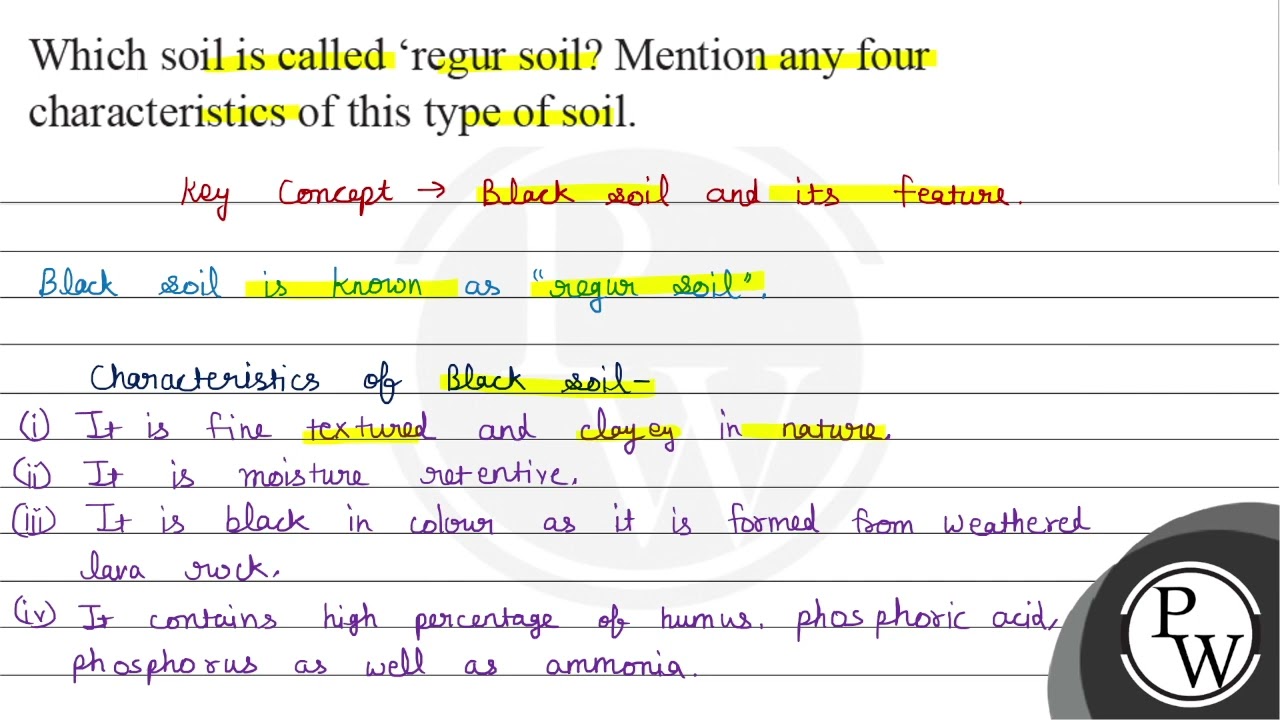 Which soil is called ‘regur soil? Mention any four
characteristics of this type of soil.
Key Concept → Black soil and its feature.
Black soil is known as "regur soil".
Characteristics of Black soil-
(i) It is fine textured and clayey in nature.
(ii) It is moisture retentive.
(iii) It is black in colour as it is formed from weathered
lava rock.
(iv) It contains high percentage of humus. phosphoric acid,
phosphorus as well as ammonia.
PW
PW